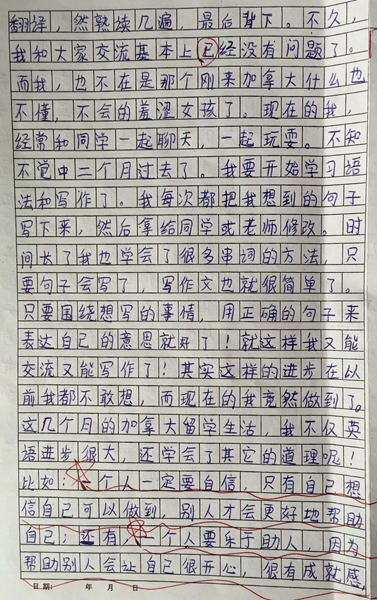 翻译，然熟读几遍，最后背下。不久，
我和大家交流基本上已经没有问题了。
而我，也不在是那个刚来加拿大什么也
不懂，不会的羞涩女孩了。现在的我，
经常和同学一起聊天，一起玩耍。不知
不觉中二个月过去了。我要开始学习语
法和写作了。我每次都把我想到的句子
写下来，然后拿给同学或老师修改。时
间长了我也学会了很多串词的方法，只
要句子会写了，写作文也就很简单了。
只要围绕想写的事情，用正确的句子来
表达自己的意思就好了！就这样我又能
交流又能写作了！其实这样的进步在以
前我都不敢想，而现在的我竟然做到了。
这几个月的加拿大留学生活，我不仅英
语进步很大，还学会了其它的道理呢！
比如：一个人一定要自信，只有自己想
信自己可以做到，别人才会更好地帮助
自己；还有，一个人要乐于助人，因为
帮助别人会让自己很开心，很有成就感，
日期： 年 月 日